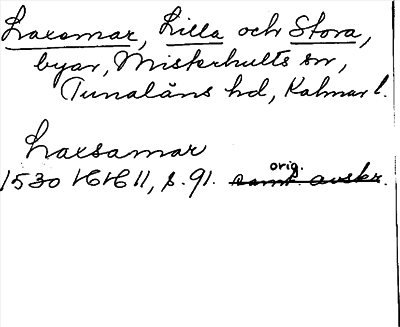 Laxemar, Lilla och Stora,
byar, Misterhults sn,
Tunaläns hd, Kalmar l.
Laxsamar
1530 HH 11, s. 91. orig. samt avskr.